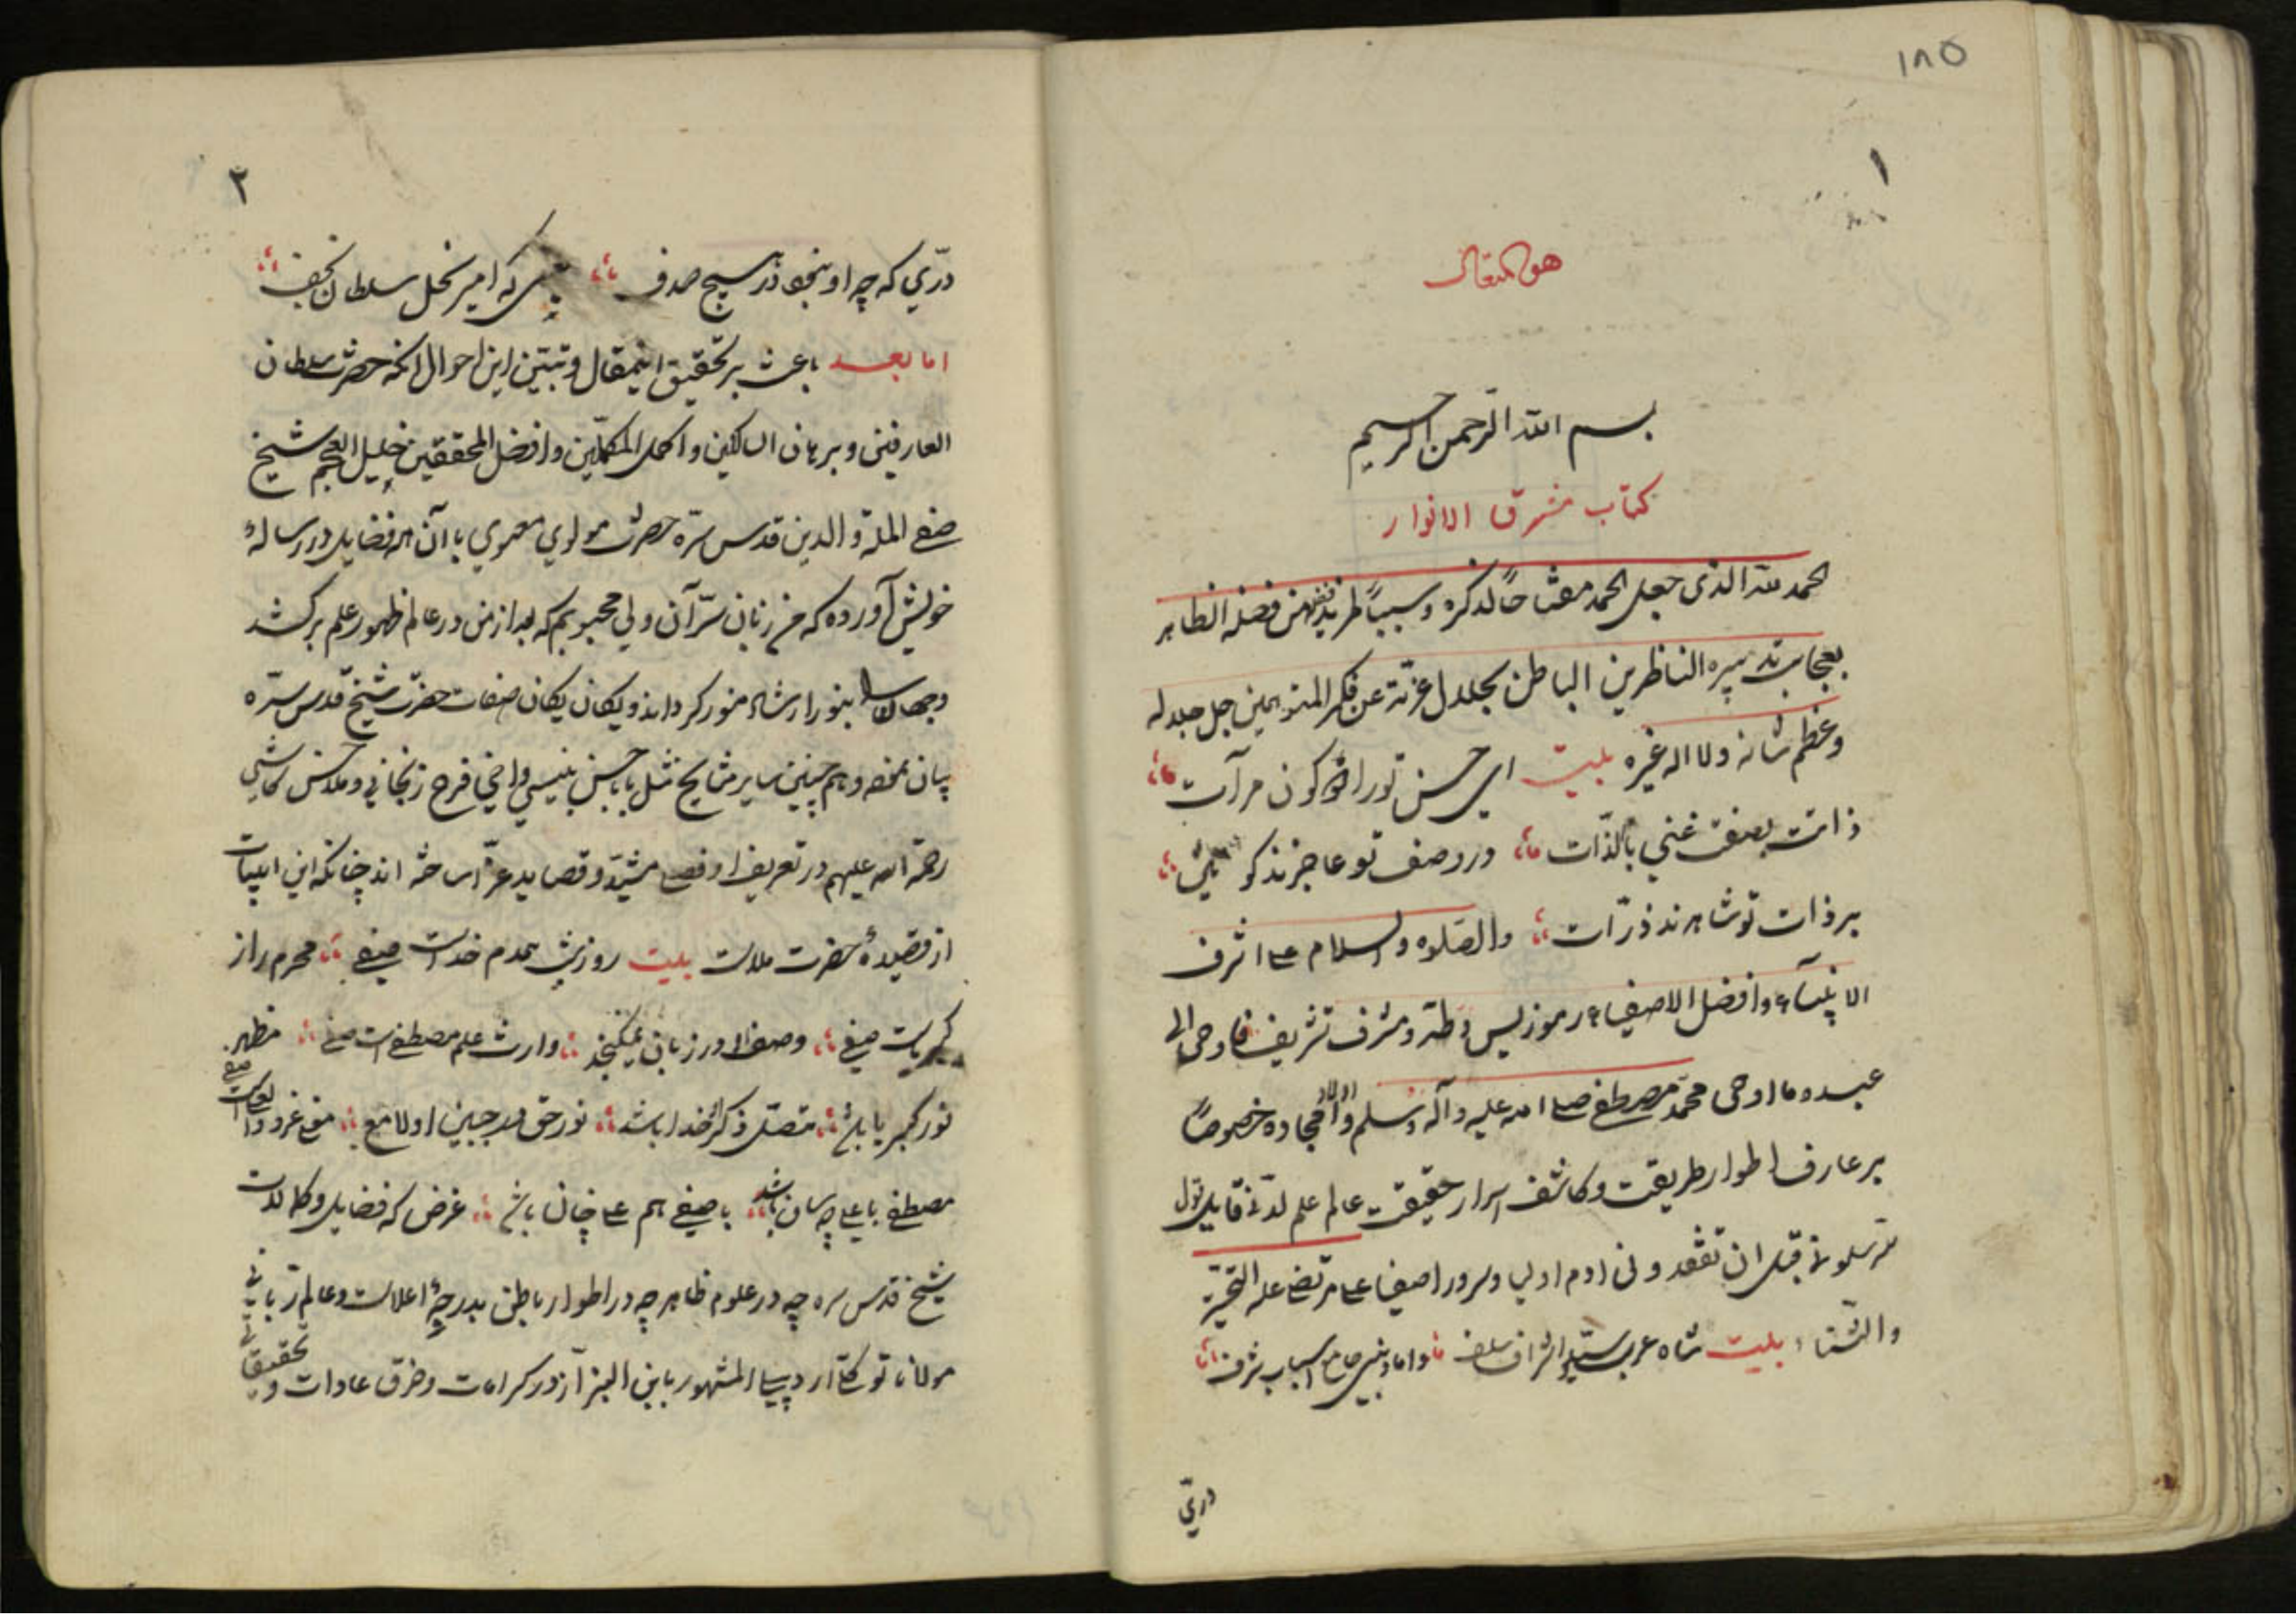 ١٨٥
١
هو المتعال
بسم الله الرحمن الرحيم
كتاب مشرق الانوار
الحمد لله الذى جعل الحمد مفتاحًا لذكره وسببًا لمزيد من فضله الظاهر
بعجايب تدبيره الناظرين الباطن بجلال عزته عن فكر المتوهمين جل جلاله
وعظم شانه ولا اله غيره بليت اى حسن تورا كون مرآت
ذاتت بصفت غني بالذّات در وصف تو عاجزند كو
بر ذات تو شاهدند ذرّات والصّلوه والسلام على اشرف
الانبيآء وافضل الاصفياء رموز يس وطه ومشرف تشريف فاوحى الى
عبده ما اوحى محمّد مصطفى صلى الله عليه وآله وسلم واولاد امجاده خصوصًا
بر عارف اطوار طريقت وكاشف اسرار حقيقت عالم علم لدنّى قايل قول
سلونى قبل ان تفقدونى ادم اوليا وسرور اصفيا على مرتضى عليه التحيّة
والثّنا بليت شاه عرب سيّد اشراف سلف داماد نبى جامع اسباب شرف
درّي
٢
درّي كه چه او نبود در هيچ صدف كه امير نحل سلطان نجف
اما بعد باعث بر تحقيق اينمقال وتبيّن اين احوال انكه حضرت سلطان
العارفين وبرهان السالكين واكمل المكمّلين وافضل المحققين خليل العجم شيخ
صفى الملّة والدين قدس سرّه حضرت مولوي معنوي با آن همه فضايل در رسالهٔ
خويش آورده كه من زنان سرّ آن ولي محبوبم كه بعد از من در عالم ظهور علم بركشد
وجهان را بنور ارشاد منور كرداند ويكان يكان صفات حضرت شيخ قدس سرّه
بيان نموده وهم چنين ساير مشايخ مثل بابا حسن بنيسي واخي فرج زنجاني وملا حسن كاشي
رحمة الله عليهم در تعريف او قصر مشيّد وقصايد غرّا ساخته اند چنانكه اين ابيات
از قصيدهٔ حضرت ملاست بليت روز وشب همدم خداست صفى محرم راز
كبرياست صفى وصف او در زبان نميكنجد وارث علم مصطفى است صفى مظهر
نور كبريا باشد متصل ذكر خدا باشد نور حق در جبين او لامع
مصطفى با على چه سان باشد با صفى هم على چنان باشد غرض كه فضايل وكمالات
شيخ قدس سره چه در علوم ظاهر چه در اطوار باطن بدرجهٔ اعلاست وعالم ربّانى
مولانا توكلى اردبيلى المشهور بابن البزّاز در كرامات وخرق عادات و تحقيقاتى